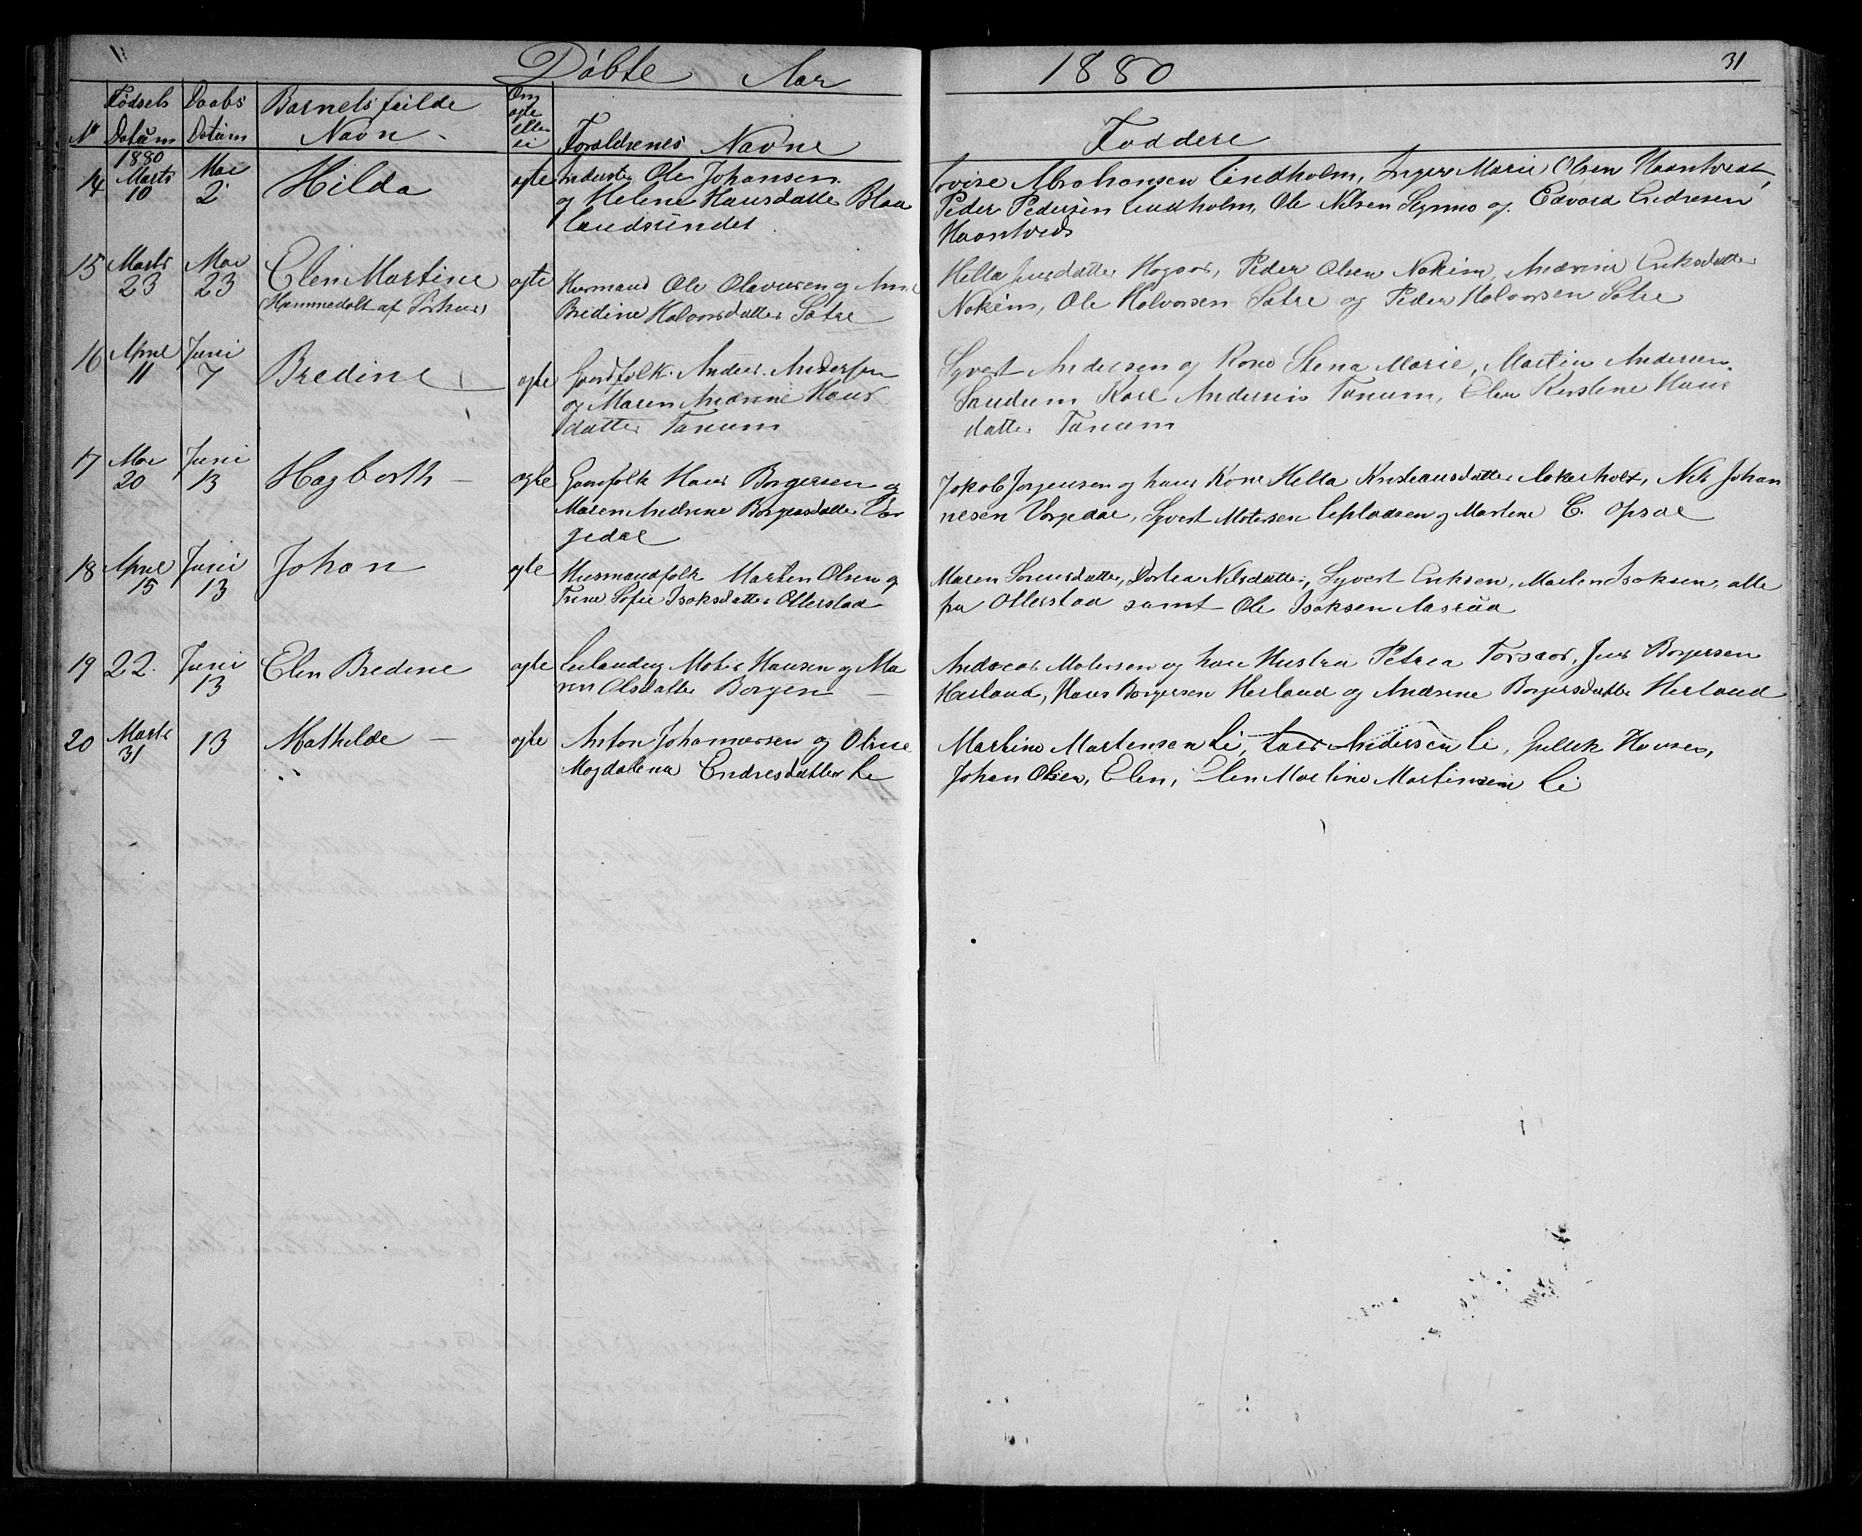 Döbte Aar 1880 31
No Fødsels Datum Daabs Datum Barnets fulde Navn Om ægte eller ei Forældrenes Navne Faddere
14 1880 Marts 10 Mai 2 Hilda ægte Inderst Ole Johansen
og Helene Hansdatter Blaa
landsundet
Lovise Abrahamsen Lindholm, Inger Marie Olsen Haantveds,
Peder Pedersen Lindholm, Ole Nilsen og Edvard Endresen
Haantveds
15 Marts 23 Mai 23 Elen Martine
(Hjemmedøbt af)
ægte Husmand Ole Olavesen og Anne
Bredine Halvorsdatter Sætre
Hella Jensdatter, Peder Olsen Nakim, Andrine Eriksdatter
Nakim, Ole Halvorsen Sætre og Peder Halvorsen Sætre
16 April 11 Juni 7 Bredine ægte Gaardfolk Anders Andersen
og Maren Andrine Hans
datter Tanum
Syvert Andersen og Kone Stena Marie, Martin Andersen
Sandum Karl Andersen Tanum, Elen Kirstine Hans
datter Tanum
17 Mai 20 Juni 13 Hagbarth ægte Gaardfolk Hans Borgersen og
Maren Andrine Borgersdatter Var
gedal
Jakob Jørgensen og hans Kone Hella Kristiansdatter, Nils Johan
nesen Vargedal, Syvert Matersen og Martine C. Opsal
18 April 15 Juni 13 Johan ægte Husmandfolk Martin Olsen og
Trine Sofie Isaksdatter Ollerstad
Maren Sørensdatter, Dortea Nilsdatter, Syvert Eriksen, Martin Isaksen, alle
fra Ollerstad samt Ole Isaksen Aasrud
19 22. Juni 13 Elen Bredine ægte Leilænding Matis Hansen og Ma
ren Olsdatter Borgen
Andreas Matersen og hans Hustru Petrea Forsaar, Jens Borgersen
Herland, Hans Borgersen Herland og Andrine Borgersdatter Herland
20 Marts 31 13 Mathilde ægte Anton Johannesen og Oline
Magdalena Endresdatter Li
Martine Martensen Li, Lars Andersen Li, Jullik Hansen,
Johan Olsen, Elen, Elen Martine Martinsen Li